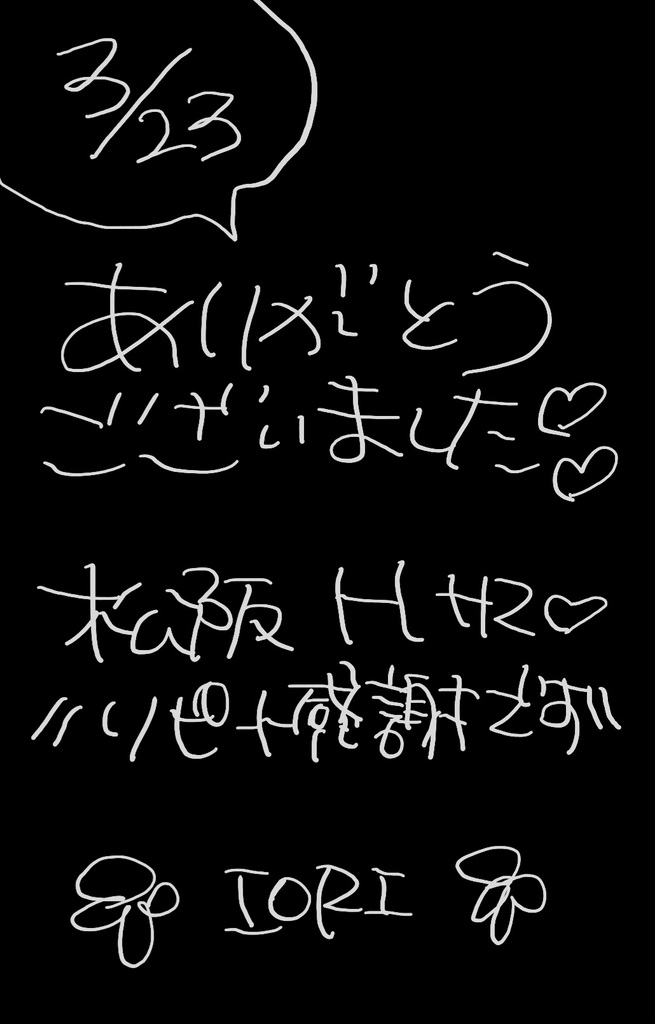 3/23
ありがとう
ございました♡♡
松阪 H サマ♡
リピ感謝です
IORI